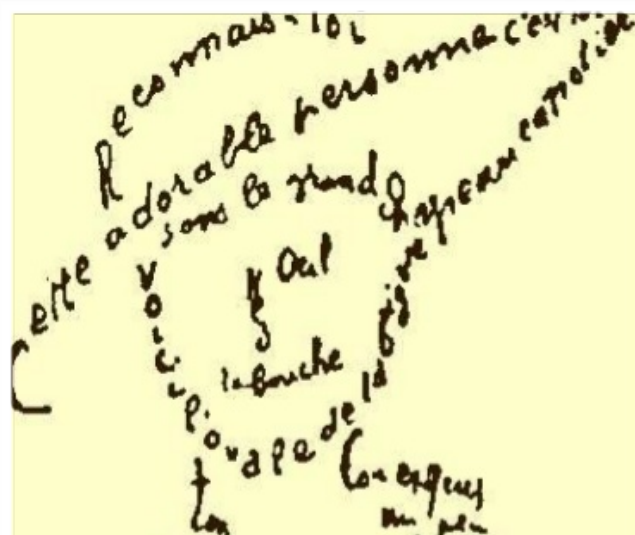 Reconnais-toi
Cette adorable personne c'est
sous le grand chapeau canotier
Œil
la bouche
Voici l'ovale de ta figure
ton
cou exquis
un peu